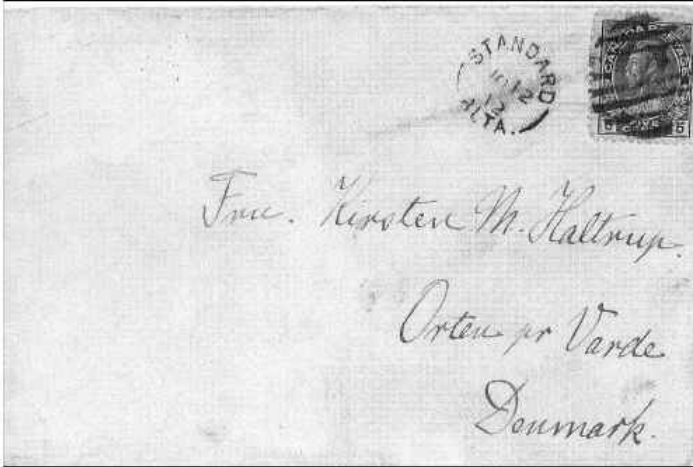 STANDARD
12
12
ALTA.
CANADA POSTAGE
5 CENTS 5
Fru. Kirsten M. Haltrup.
Orten pr Varde
Denmark.